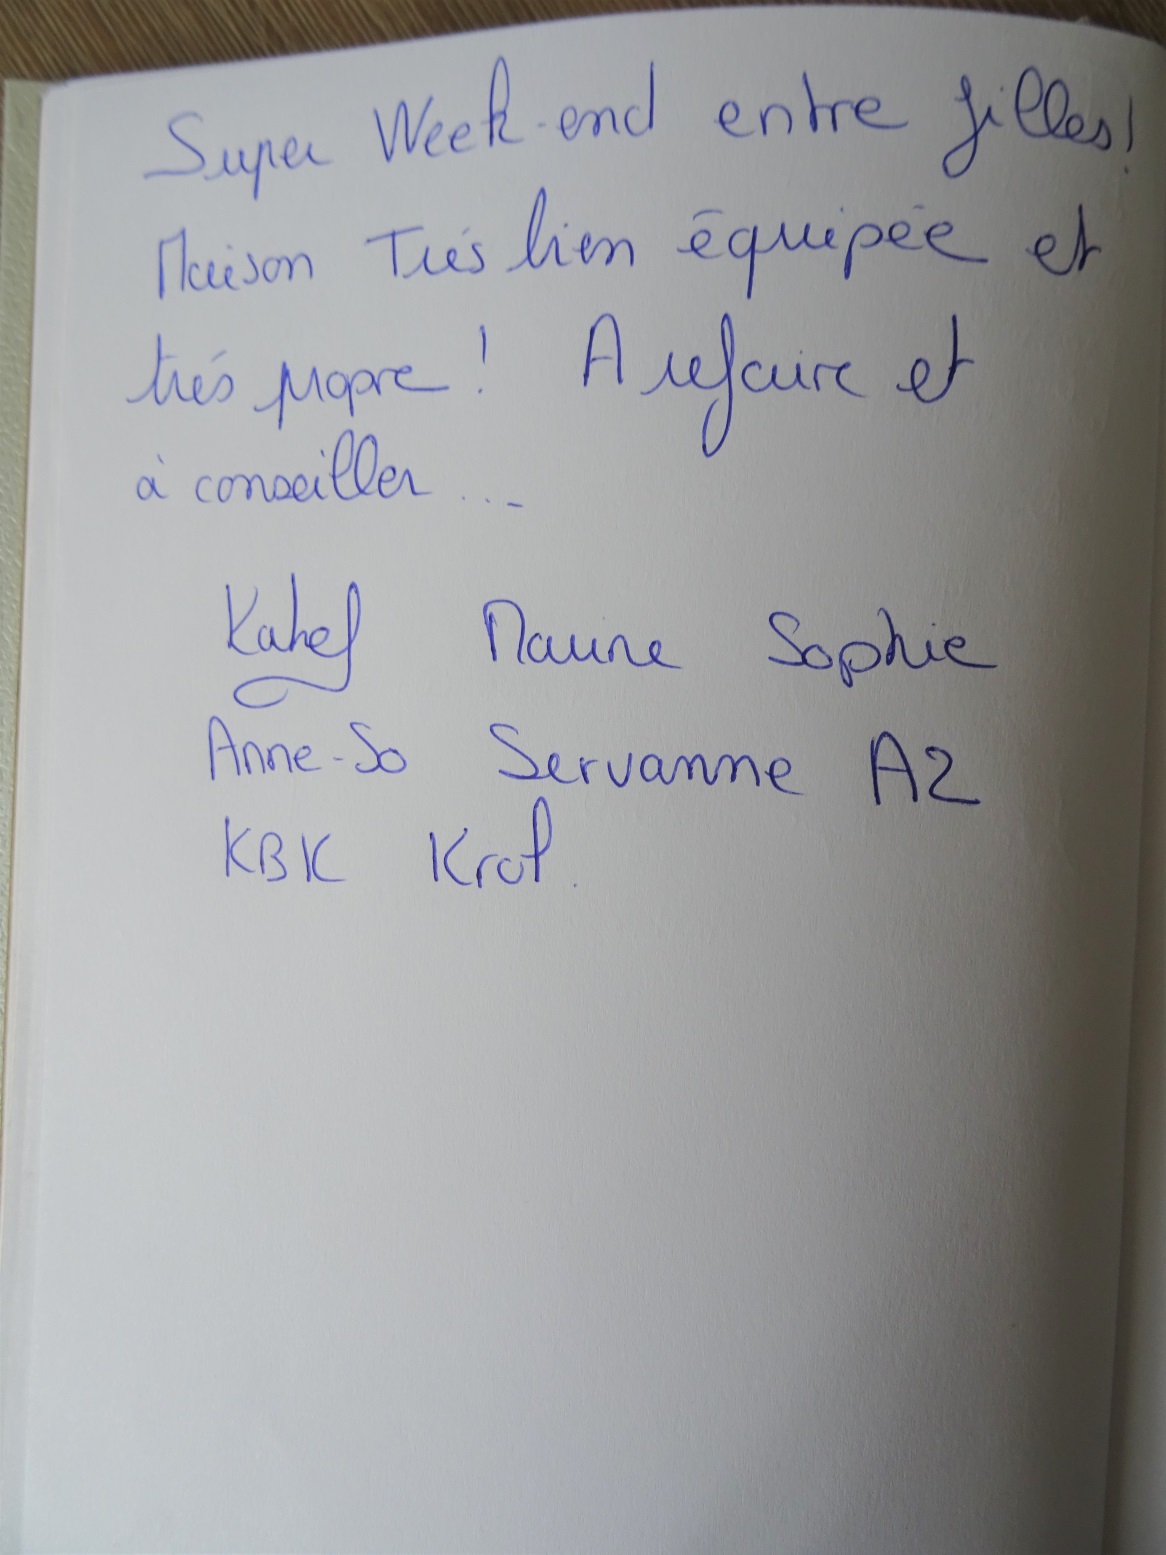 Super Week-end entre filles!
Maison Très bien équipée et
très propre! A refaire et
à conseiller...
Sophie
Anne-So Servanne A2
KBK